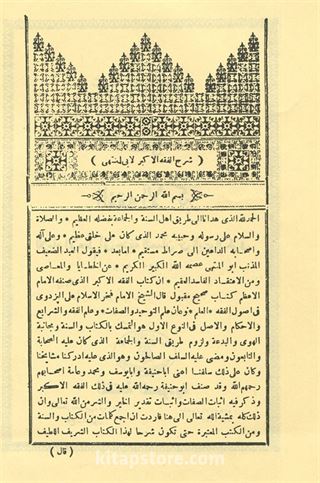 ( شرح الفقه الاكبر لابى المنتهى )
بسم الله الرحمن الرحيم
الحمد لله الذى هدانا الى طريق اهل السنة والجماعة بفضله العظيم * والصلاة
والسلام على رسوله وحبيبه محمد الذى كان على خلق عظيم * وعلى آله
واصحابه الداعين الى صراط مستقيم * اما بعد * فيقول العبد الضعيف
المذنب ابو المنتهى عصمه الله الكبير الكريم * عن الخطايا والمعاصى
ومن الاعتقاد الفاسد السقيم * ان كتاب الفقه الاكبر الذى صنفه الامام
الاعظم كتاب صحيح مقبول قال الشيخ الامام فخر الاسلام على البزدوى
فى اصول الفقه * العلم * نوعان علم التوحيد والصفات * وعلم الفقه والشرايع
والاحكام والاصل فى النوع الاول هو التمسك بالكتاب والسنة ومجانبة
الهوى والبدعة ولزوم طريق السنة والجماعة الذى كان عليه الصحابة
والتابعون ومضى عليه السلف الصالحون وهو الذى عليه ادركنا مشايخنا
وكان على ذلك سلفنا اعنى اباحنيفة وابايوسف ومحمدا وعامة اصحابهم
رحمهم الله وقد صنف ابوحنيفة رحمه الله عليه فى ذلك الفقه الاكبر
وذكر فيه اثبات الصفات واثبات تقدير الخير والشر من الله تعالى وان
ذلك كله بمشية الله تعالى الى هنا فاردت ان اجمع كلمات من الكتاب والسنة
ومن الكتب المعتبرة حتى تكون شرحا لهذا الكتاب الشريف اللطيف
( قال )
kitapstore.com